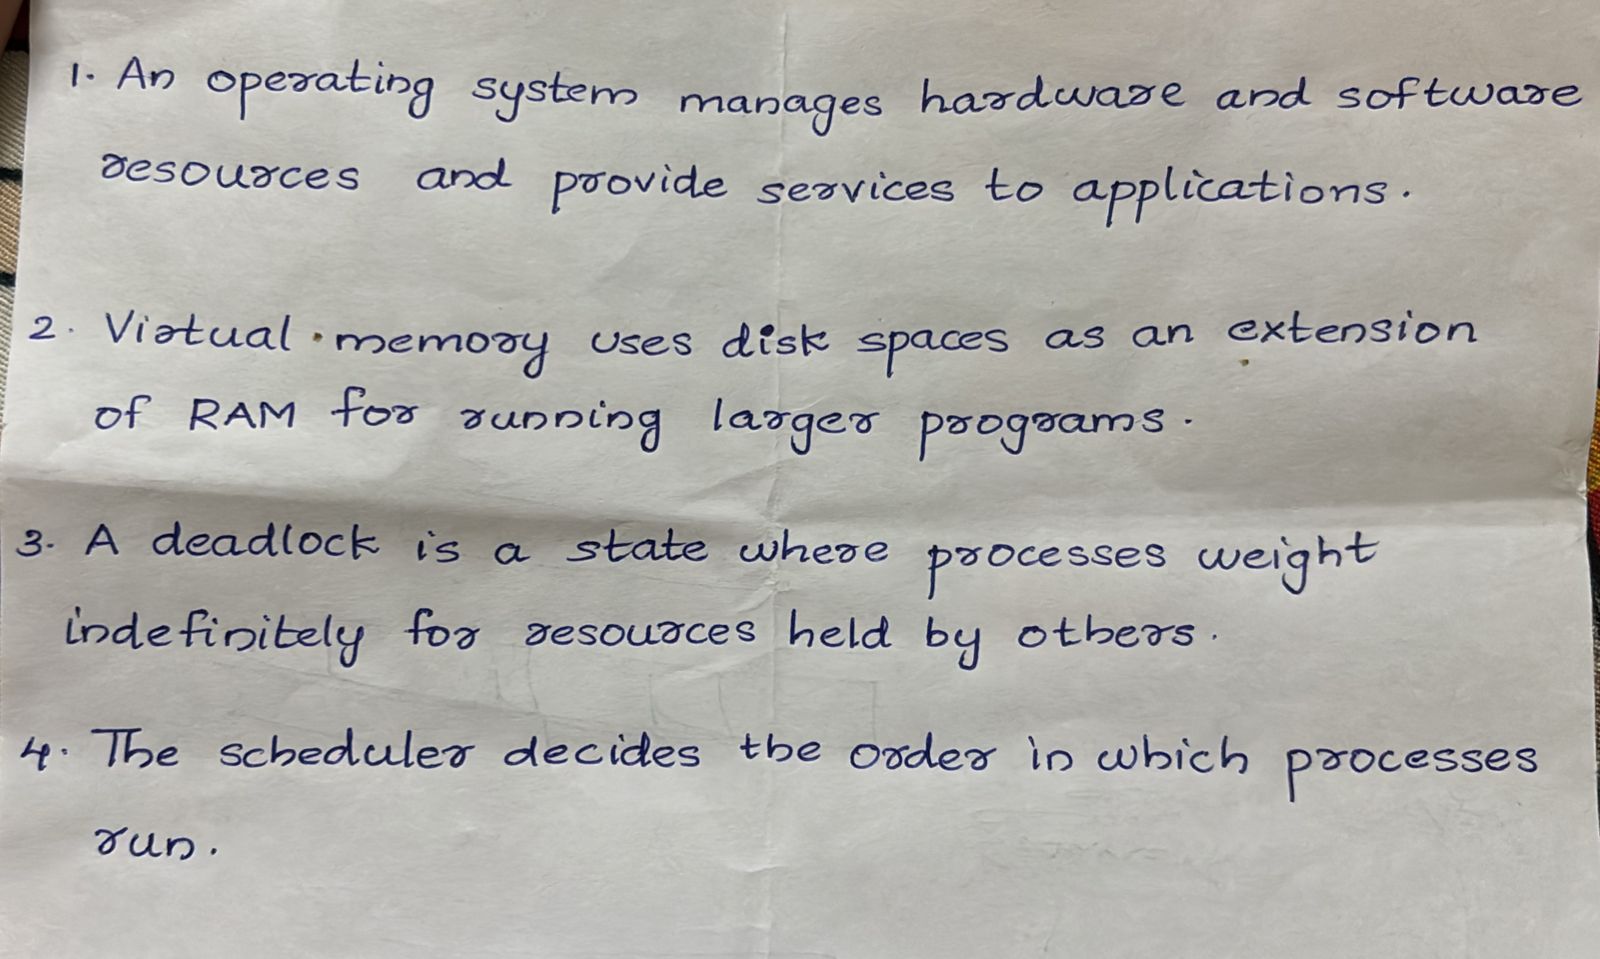 1. An operating system manages hardware and software
resources and provide services to applications.
2. Virtual memory uses disk spaces as an extension
of RAM for running larger programs.
3. A deadlock is a state where processes weight
indefinitely for resources held by others.
4. The scheduler decides the order in which processes
run.